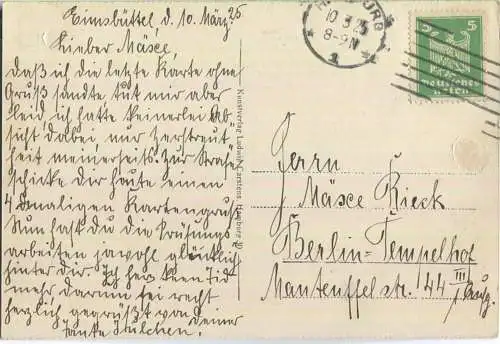 Eimsbüttel, d. 10. März 25
Lieber Mäxe,
daß ich die letzte Karte ohne
Gruß sandte, tut mir aber
leid, ich hatte keinerlei Ab-
sicht dabei, nur Zerstreut-
heit meinerseits. Zur Strafe
schicke Dir heute einen
4 maligen Kartengruß
Nun hast Du die Prüfungs-
arbeiten jawohl glücklich
hinter Dir. Ich herr keen Tid
mehr darum sei recht
herzlich gegrüßt von Deiner
Tante Julchen.
Kunstverlag Ludwig Hamburg
HAMBURG
10.3.25
8-9N
1
5
Deutsches
Reich
Herrn
Mäxe Rieck
Berlin-Tempelhof
Manteuffelstr. 144 III
Aufg.